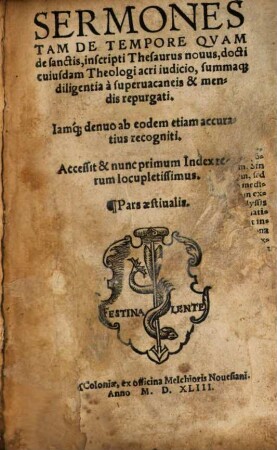 SERMONES
TAM DE TEMPORE QVAM
de sanctis, inscripti Thesaurus nouus, docti
cuiusdam Theologi acri iudicio, summaq;
diligentia à superuacaneis & men-
dis repurgati.
Iamq; denuo ab eodem etiam accura-
tius recogniti.
Accessit & nunc primum Index re-
rum locupletissimus.
¶Pars æstiualis.
FESTINA LENTE
Coloniæ, ex officina Melchioris Nouesiani.
Anno M. D. XLIII.